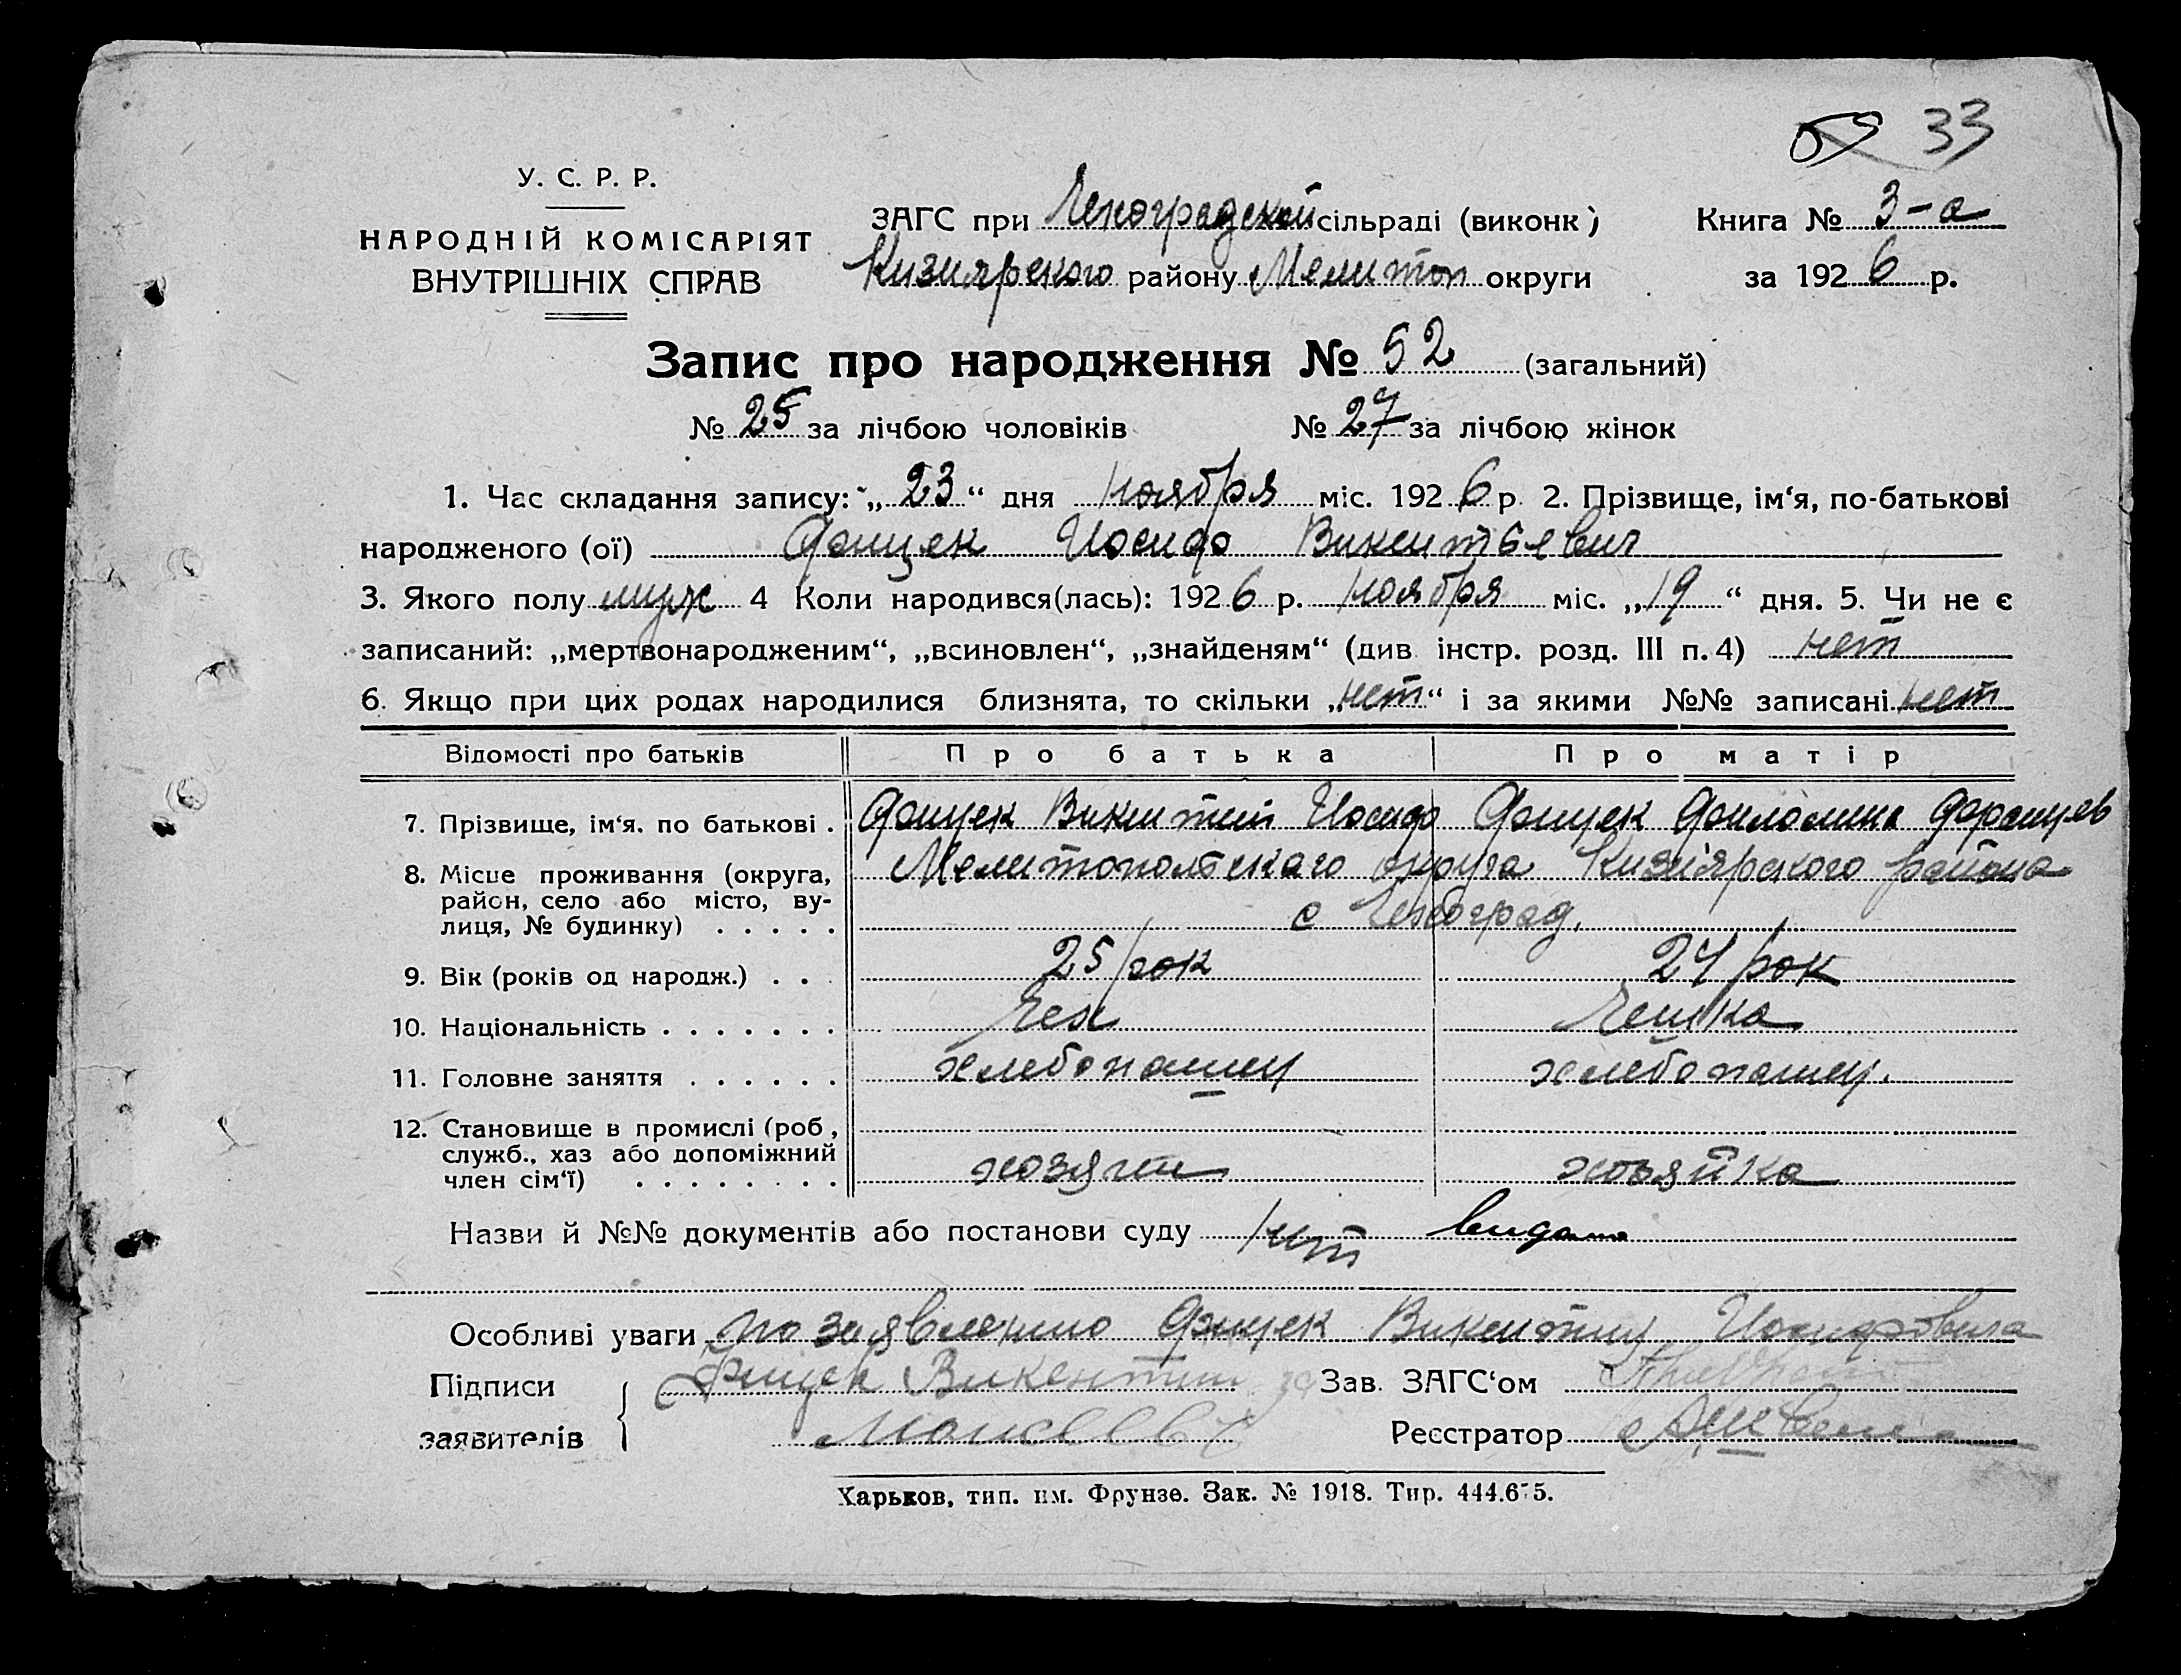 59 33
У. С. Р. Р.
НАРОДНІЙ КОМІСАРІЯТ
ВНУТРІШНІХ СПРАВ
ЗАГС при Чехоградской сільраді (виконк)
Книга № 3-а
Кизиярского району Мелитоп округи
за 1926 р.
Запис про народження № 52 (загальний)
№ 25 за лічбою чоловіків № 27 за лічбою жінок
1. Час складання запису: „23“ дня ноября міс. 1926 р. 2. Прізвище, ім‘я, по-батькові
народженого (ої) Фицек Иосиф Викентьевич
3. Якого полу муж 4 Коли народився(лась): 1926 р. ноября міс. „19“ дня. 5. Чи не є
записаний: „мертвонародженим“, „всиновлен“, „знайденям“ (див. інстр. розд. III п. 4) нет
6. Якщо при цих родах народилися близнята, то скільки „нет“ і за якими №№ записані нет
Відомості про батьків Про батька Про матір
7. Прізвище, ім‘я. по батькові . Фицек Викентий Иосиф Фицек Филомина Францев
8. Місце проживання (округа, район, село або місто, вулиця, № будинку) . . . . . Мелитопольскаго округа Кизиярского района
с Чехоград.
9. Вік (років од народж.) . . . 25 рок 24 рок
10. Національність . . . . . . . Чех Чешка
11. Головне заняття . . . . . . хлебопашец хлебопашец.
12. Становище в промислі (роб., служб., хаз або допоміжний член сім‘ї) . . . . . . . . хозяин хозяйка
Назви й №№ документів або постанови суду нет видана
Особливі уваги по заявлению Фицек Викентия Иосифовича
Підписи
заявителів
Фицек Викентий за
Моисеев
Зав. ЗАГС‘ом
Реєстратор
Харьков, тип. им. Фрунзе. Зак. № 1918. Тир. 444.675.